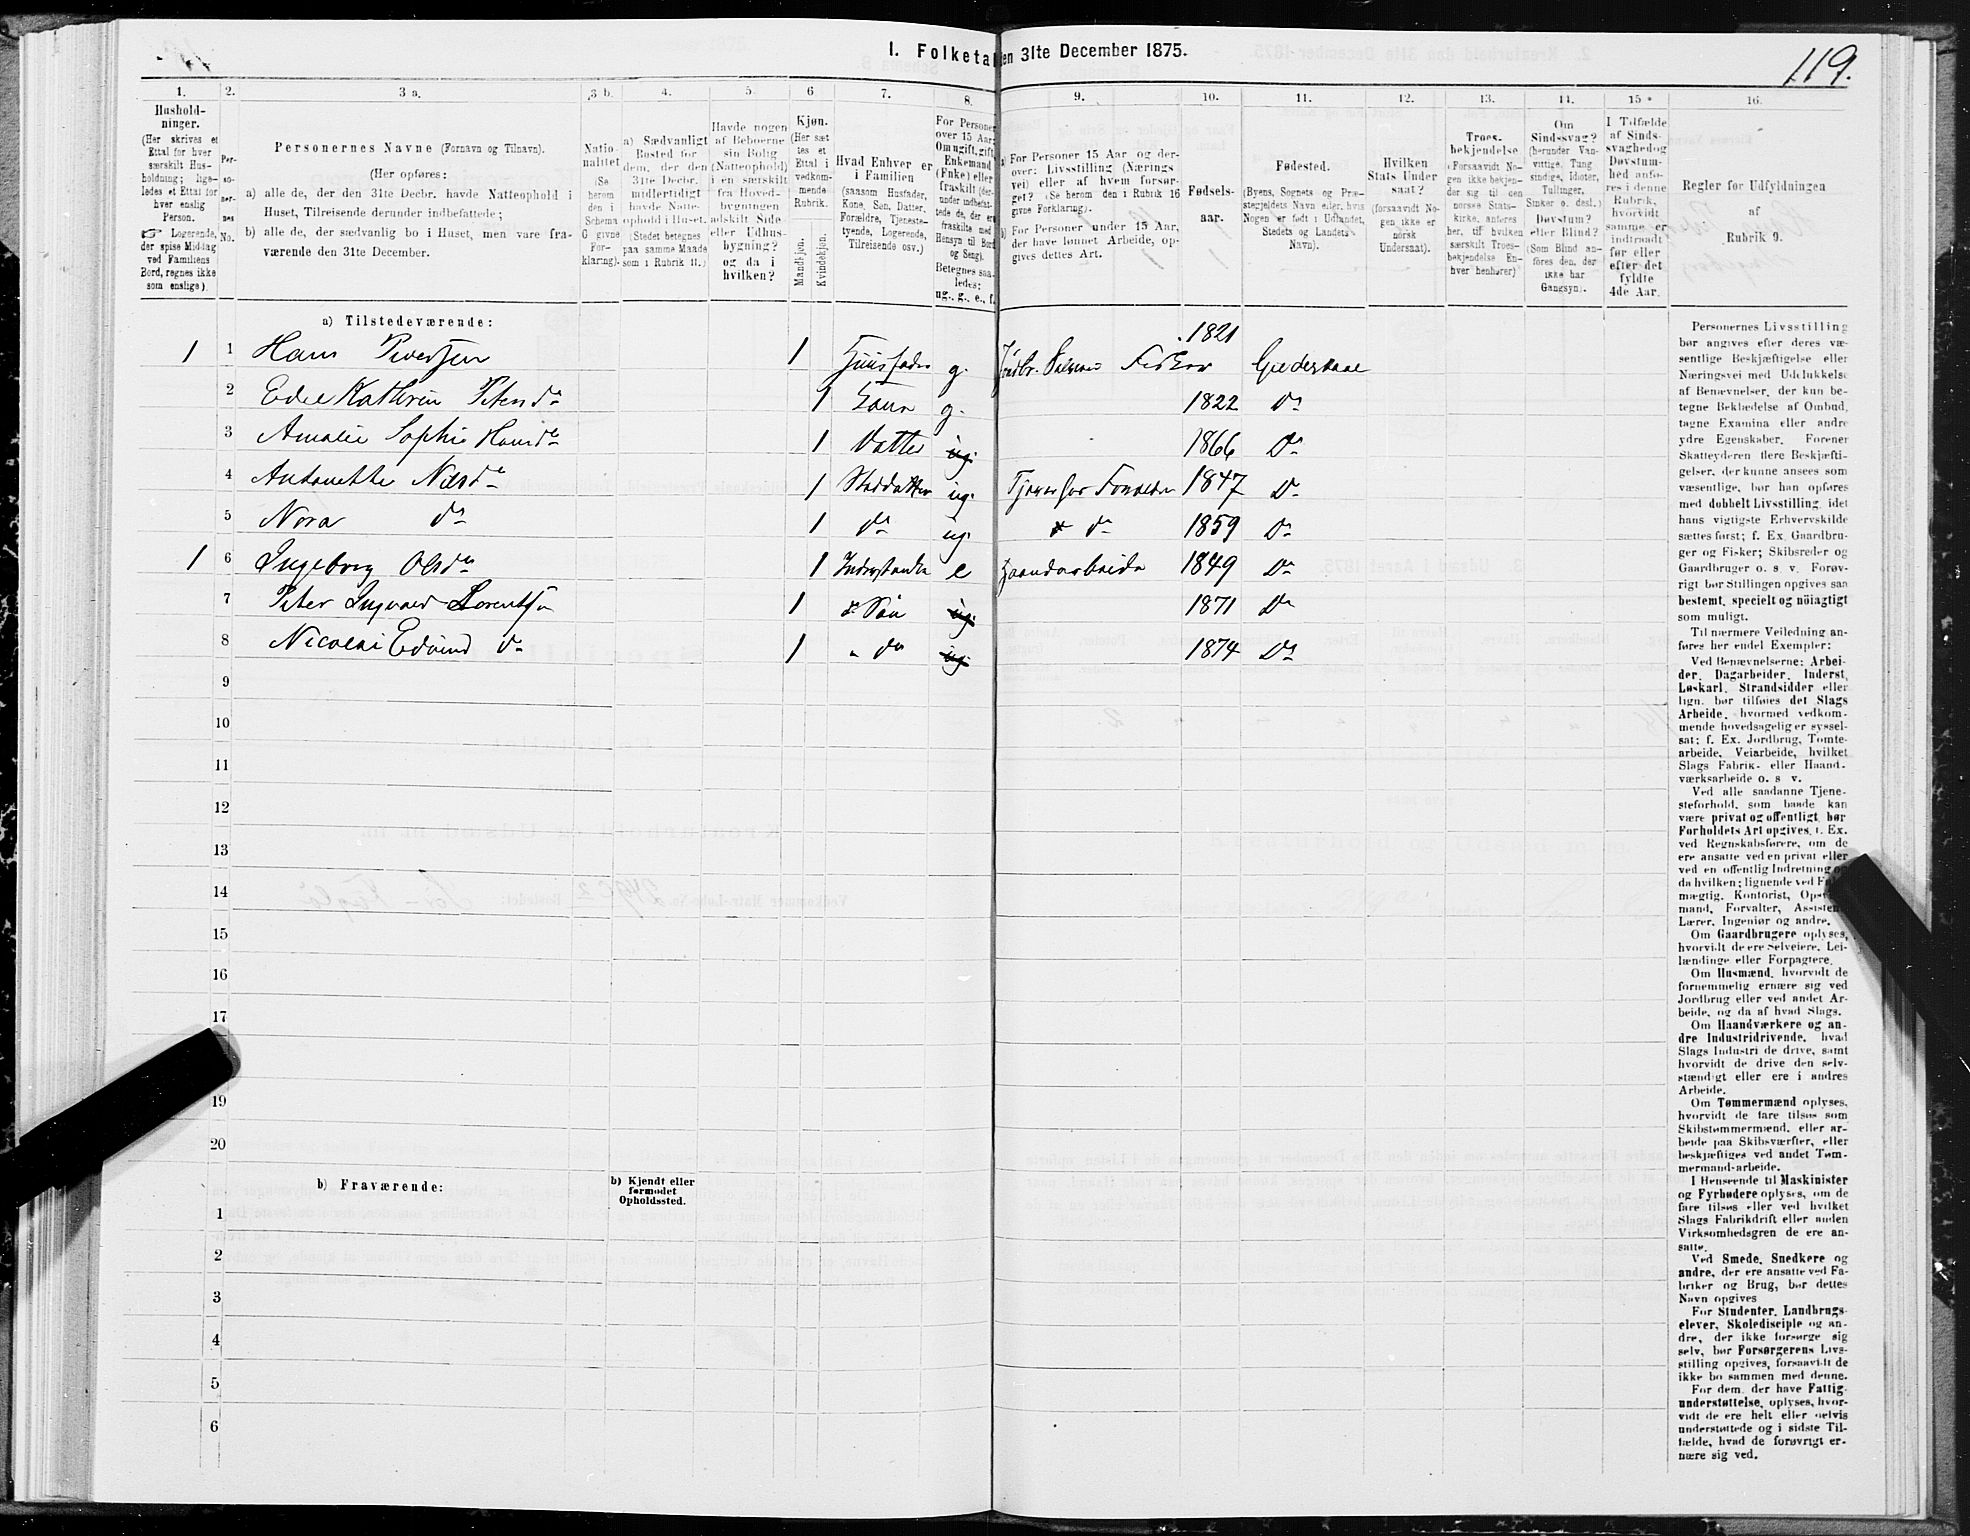 119.
I. Folketal den 31te December 1875.
1. 2. 3 a. 3 b. 4. 5. 6 7. 8. 9. 10. 11. 12. 13. 14. 15 16.
Hushold-
ninger.
(Her skrives et
Ettal for hver
særskilt Hus-
holdning; lige-
ledes et Ettal for
hver enslig
Person.
☞ Logerende,
der spise Middag
ved Familiens
Bord, regnes ikke
som enslige).
Per-
so-
ner-
nes
No.
Personernes Navne (Fornavn og Tilnavn).
(Her opføres:
a) alle de, der den 31te Decbr. havde Natteophold i
Huset, Tilreisende derunder indbefattede;
b) alle de, der sædvanlig bo i Huset, men vare fra-
værende den 31te December.
Natio-
nalitet
(Se
herom
den i
Schema
G givne
For-
klaring).
a) Sædvanligt
Bosted for
dem, der den
31te Decbr.
midlertidigt
havde Natte-
ophold i Huset.
(Stedet betegnes
paa samme Maade
som i Rubrik 11.)
Havde nogen
af Beboerne
sin Bolig
(Natteophold)
i en særskilt
fra Hoved-
bygningen
adskilt Side-
eller Udhus-
bygning?
og da i
hvilken?
Kjøn.
(Her sæt
tes et
Ettal i
vedkom-
mende
Rubrik.
Mandkjøn.
Kvindekjøn.
Hvad Enhver er
i Familien
(saasom Husfader,
Kone, Søn, Datter,
Forældre, Tjeneste-
tyende, Logerende,
Tilreisende osv.)
For Personer
over 15 Aar:
Om ugift, gift,
Enkemand
(Enke) eller
fraskilt (der-
under indbefat-
tede de, der ere
fraskilte med
Hensyn til Bord
og Seng).
Betegnes saa-
ledes:
ug., g., e., f.
a) For Personer 15 Aar og der-
over: Livsstilling (Nærings
vei) eller af hvem forsør-
get? (Se herom den i Rubrik 16
givne Forklaring).
b) For Personer under 15 Aar,
der have lønnet Arbeide, op-
gives dettes Art.
Fødsels-
aar.
Fødested.
(Byens, Sognets og Præ-
stegjeldets Navn eller, hvis
Nogen er født i Udlandet,
Stedets og Landets
Navn).
Hvilken
Stats Under
saat?
(forsaavidt No-
gen ikke er
norsk
Undersaat).
Troes-
bekjendelse
(Forsaavidt No-
gen ikke bekjen-
der sig til den
norske Stats-
kirke, anføres
her, til hvilken
særskilt Troes-
bekjendelse En-
hver henhører)
Om
Sindssvag?
(herunder Van-
vittige, Tung
sindige, Idioter,
Tullinger,
Sinker o. desl.)
Døvstum?
eller Blind?
(Som Blind an-
føres den, der
ikke har
Gangsyn).
I Tilfælde
af Sinds-
svaghed og
Døvstum-
hed anfø-
res i denne
Rubrik,
hvorvidt
samme er
indtraadt
før eller
efter det
fyldte
4de Aar.
Regler for Udfyldningen
af
Rubrik 9.
a) Tilstedeværende:
1 1 Hans Iversen 1 Huusfader g. Jordbr. Fisker 1821 Gildeskaal
2 Edel Kathrin Petersdr 1 Kone g. 1822 Do
3 Amalie Sophie Hansdr 1 Datter ug. 1866 Do
4 Antonette Nilsdr 1 Steddatter ug. Tjener for Forældre 1847 Do
5 Nora do 1 do ug. do 1859 Do
1 6 Ingeborg Olsdr 1 Inderstenke e Haandarbeide 1849 Do
7 Peter Ingvald Lorentsen 1 Søn ug. 1871 Do
8 Nicolai Edvind do 1 " do ug. 1874 Do
9
10
11
12
13
14
15
16
17
19
20
b) Fraværende:
b) Kjendt eller
formodet
Opholdssted.
1
2
3
4
5
6
Personernes Livsstilling
bør angives efter deres væ-
sentlige Beskjæftigelse eller
Næringsvei med Udelukkelse
af Benævnelser, der kun be-
tegne Beklædelse af Ombud,
tagne Examina eller andre
ydre Egenskaber. Forener
Skatteyderen flere Beskjæfti-
gelser, der kunne ansees som
væsentlige, bør han opføres
med dobbelt Livsstilling, idet
hans vigtigste Erhvervskilde
sættes først; f. Ex. Gaardbru-
ger og Fisker; Skibsreder og
Gaardbruger o. s. v. Forøv-
rigt bør Stillingen opgives saa
bestemt, specielt og nöiagtigt
som muligt.
Til nærmere Veiledning an-
føres her endel Exempler:
Ved Benævnelserne: Arbei-
der, Dagarbeider, Inderst,
Løskarl, Strandsidder eller
lign. bør tilføies det Slags
Arbeide, hvormed vedkom-
mende hovedsagelig er syssel-
sat; f. Ex. Jordbrug, Tomte-
arbeide, Veiarbeide, hvilket
Slags Fabrik- eller Haand-
værksarbeide o. s v.
Ved alle saadanne Tjene-
steforhold, som baade kan
være privat og offentligt, bør
Forholdets Art opgives, f. Ex.
ved Regnskabsførere, om de
ere ansatte ved en privat eller
ved en offentlig Indretning og
da hvilken; lignende ved
mægtig, Kontorist,
mand, Forvalter,
Lærer, Ingeniør og andre.
Om Gaardbrugere oplyses,
hvorvidt de ere Selveiere, Lei-
lændinge eller Forpagtere.
Om Husmænd, hvorvidt de
fornemmelig ernære sig ved
Jordbrug eller ved andet Ar-
beide, og da af hvad Slags.
Om Haandværkere og an-
dre Industridrivende, hvad
Slags Industri de drive, samt
hvorvidt de drive den selv-
stændigt eller ere i andres
Arbeide.
Om Tømmermænd oplyses,
hvorvidt de fare tilsøs som
Skibstømmermænd, eller ar-
beide paa Skibsværfter, eller
beskjæftiges ved andet Tøm-
mermandarbeide.
I Henseende til Maskinister
og Fyrbødere oplyses, om de
fare tilsøs eller ved hvilket
Slags Fabrikdrift eller anden
Virksomhedsgren de ere an-
satte.
Ved Smede, Snedkere og
andre, der ere ansatte ved Fa-
briker og Brug, bør dettes
Navn opgives
For Studenter, Landbrugs-
elever, Skoledisciple og an-
dre, der ikke forsørge sig
selv, bør Forsørgerens Livs-
stilling opgives, forsaavidt de
ikke bo sammen med denne.
For dem, der have Fattig-
understøttelse, oplyses, hvor-
vidt de ere helt eller delvis
understøttede og i sidste Til-
fælde, hvad de forøvrigt er-
nære sig ved.